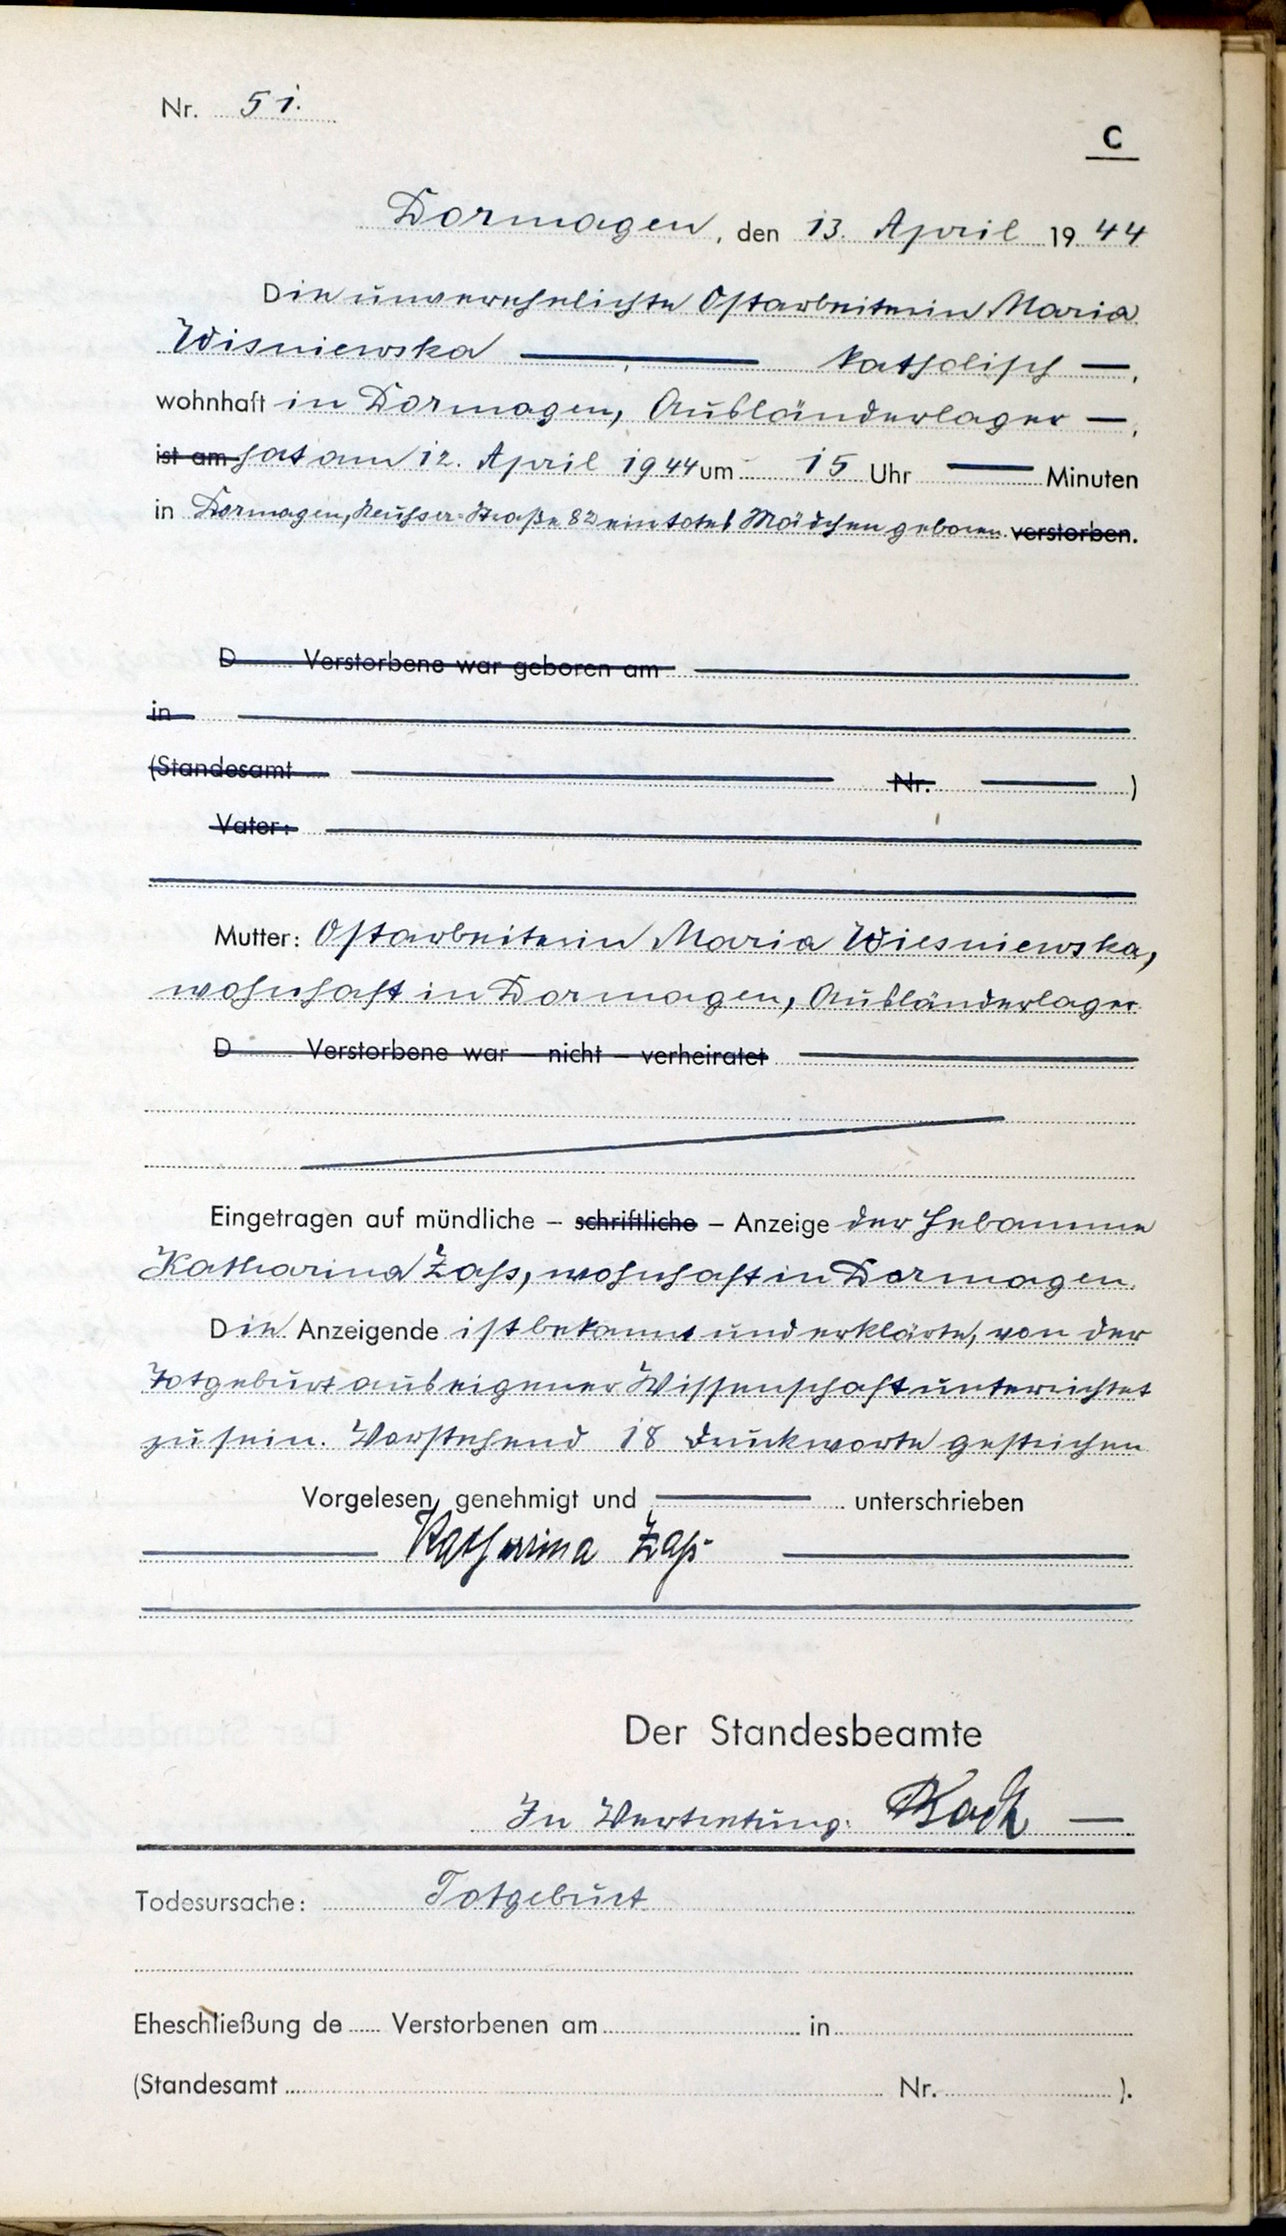 Nr. 51.
C
Dormagen, den 13. April 1944
Die unverehelichte Ostarbeiterin Maria
Wisniewska — katholisch —,
wohnhaft in Dormagen, Ausländerlager —,
ist am hat am 12. April 1944 um 15 Uhr — Minuten
in Dormagen, Neusser-Straße 82 ein totes Mädchen geboren. verstorben.
D Verstorbene war geboren am
in
(Standesamt Nr. )
Vater:
Mutter: Ostarbeiterin Maria Wiesniewska,
wohnhaft in Dormagen, Ausländerlager
D Verstorbene war – nicht – verheiratet
Eingetragen auf mündliche – schriftliche – Anzeige der Hebamme
Katharina Zaß, wohnhaft in Dormagen.
Die Anzeigende ist bekannt und erklärte, von der
Totgeburt aus eigener Wissenschaft unterrichtet
zu sein. Vorstehend 18 Druckworte gestrichen
Vorgelesen, genehmigt und — unterschrieben
Katharina Zaß
Der Standesbeamte
In Vertretung: Koch —
Todesursache: Totgeburt
Eheschließung de Verstorbenen am in
(Standesamt Nr. ).